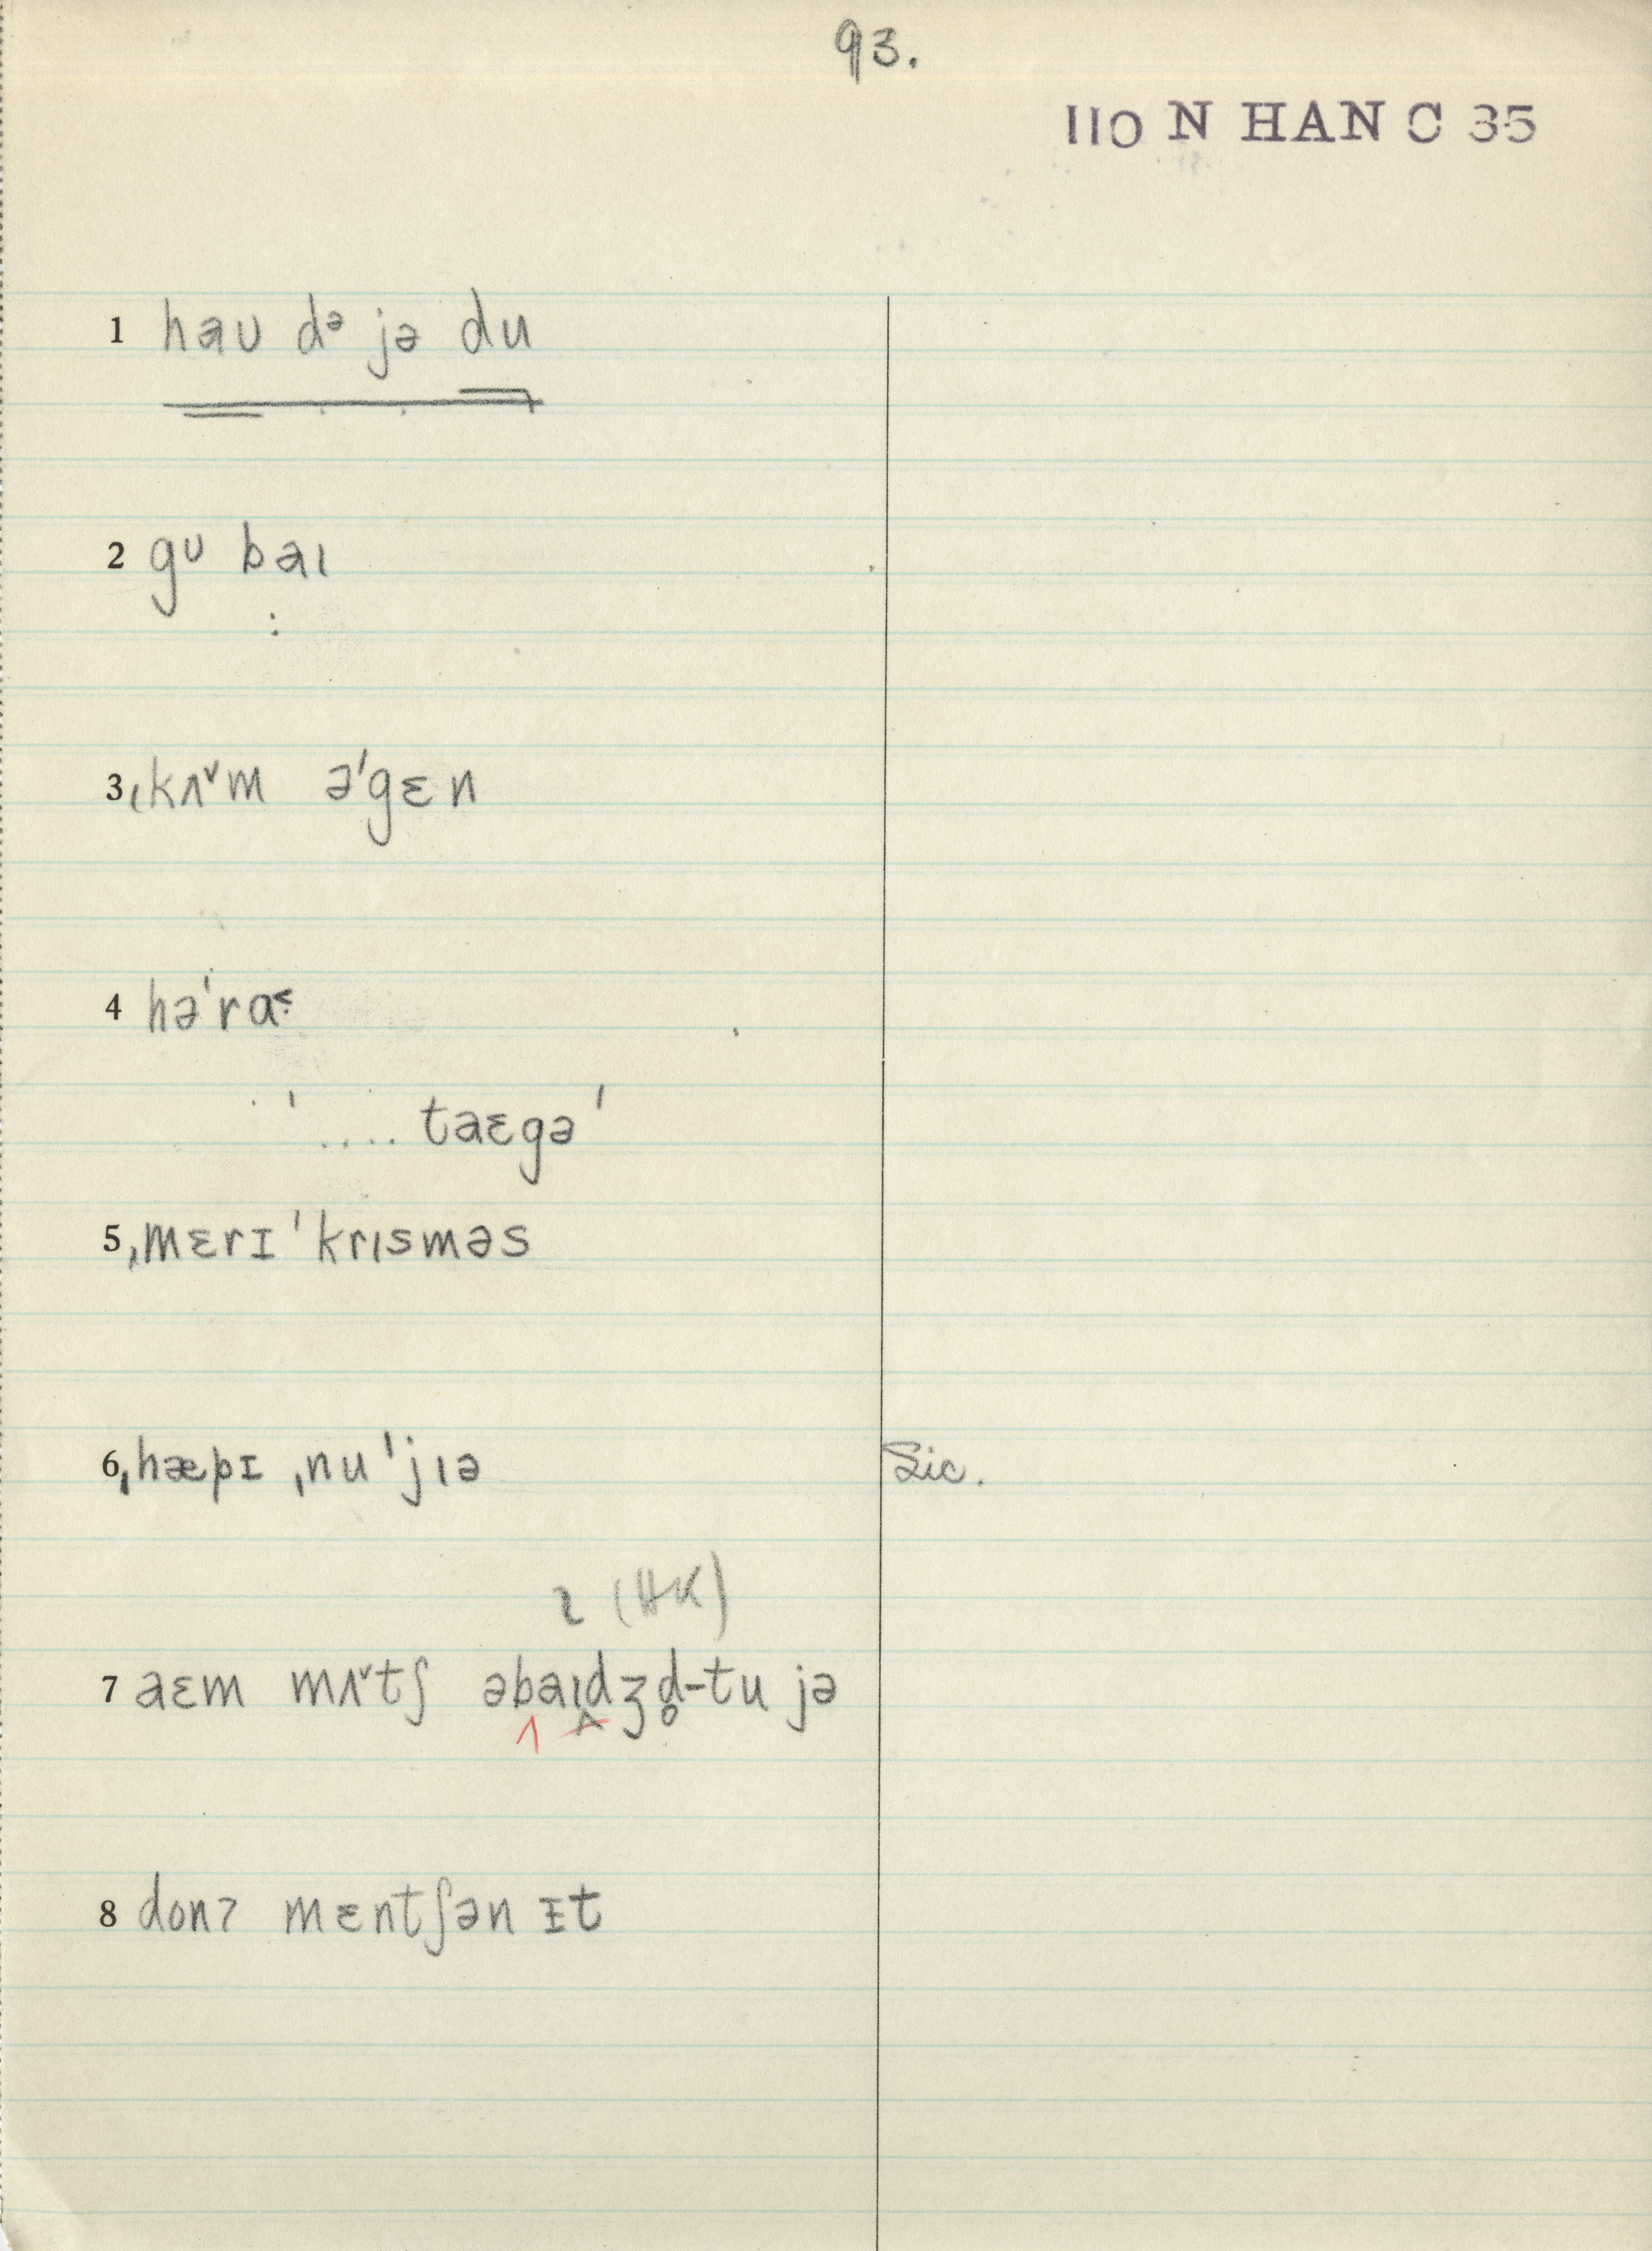 93.
110 N HAN C 35
1 haʊ dᵊ jə du
2 gᶷ baɪ
3 ˌkʌ˅m ə'gɛn
4 hə'ra˂·
' .... taɛgə'
5 ˌmɛrɪ 'krɪsməs
6 ˌhæpɪ ˌnu 'jɪə Sic.
ɩ (HK)
7 aɛm mʌ˅tʃ əbaɪdʒd̥-tu jə
8 donʔ mɛntʃən ɪt